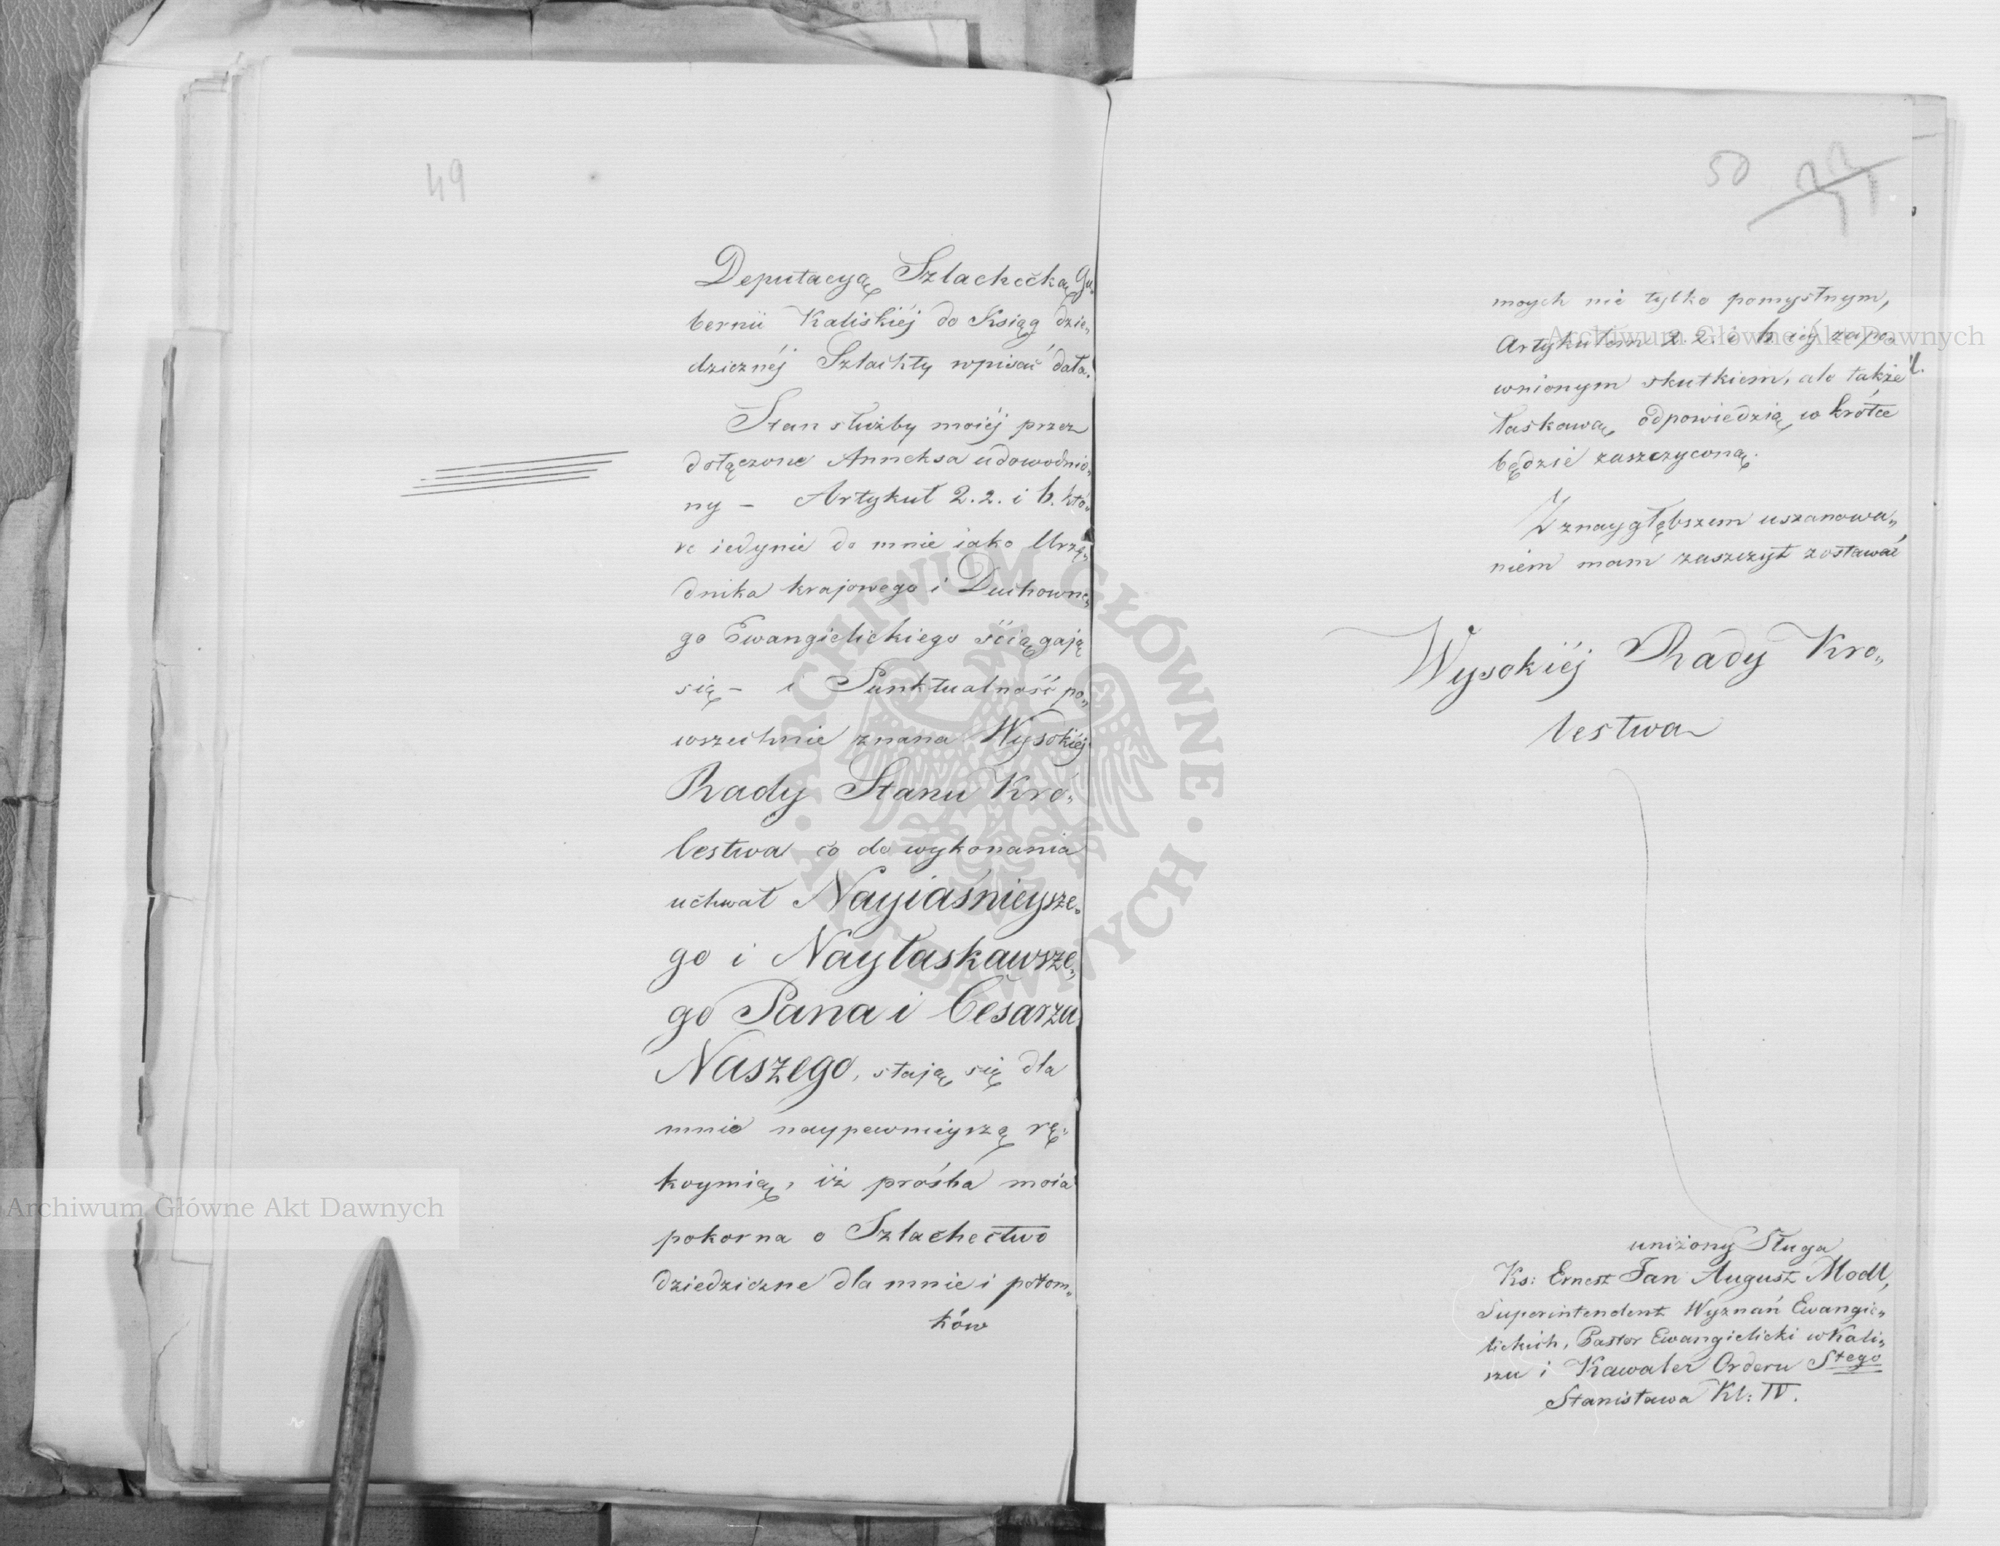 49
Deputacyą Szlachecką Gu„
bernii Kaliskiéj do Ksiąg dzie„
dzicznéj Szlachty wpisać dała.
Stan służby moiéj przez
dołączone Anneksa udowodnio„
ny – Artykuł 2. 2. i b. któ„
re iedynie do mnie iako Urzę„
dnika krajowego i Duchowne„
go Ewangielickiego ściągają
się – i Punktualność po„
wszechnie znana Wysokiéj
Rady Stanu Kró„
lestwa co do wykonania
uchwał Nayiaśnieysze„
go i Nayłaskawsze„
go Pana i Cesarza
Naszego, stają się dla
mnie naypewnieyszą rę„
koymią, iż prośba moia
pokorna o Szlachectwo
dziedziczne dla mnie i potom„
ków
50
moych nie tylko pomyślnym,
Artykułem 2. 2. i b. éj zape„
wnionym skutkiem, ale także
łaskawą odpowiedzią w krótce
będzie zaszczyconą.
Z znaygłębszem uszanowa„
niem mam zaszczyt zostawać
Wysokiéj Rady Kro„
lestwa
uniżony Sługa
Ks: Ernest Jan August Modl,
Superintendent Wyznań Ewangie„
lickich, Pastor Ewangielicki w Kali„
szu i Kawaler Orderu Stego
Stanisława Kl: IV.
Archiwum Główne Akt Dawnych
Archiwum Główne Akt Dawnych
ARCHIWUM GŁÓWNE AKT DAWNYCH